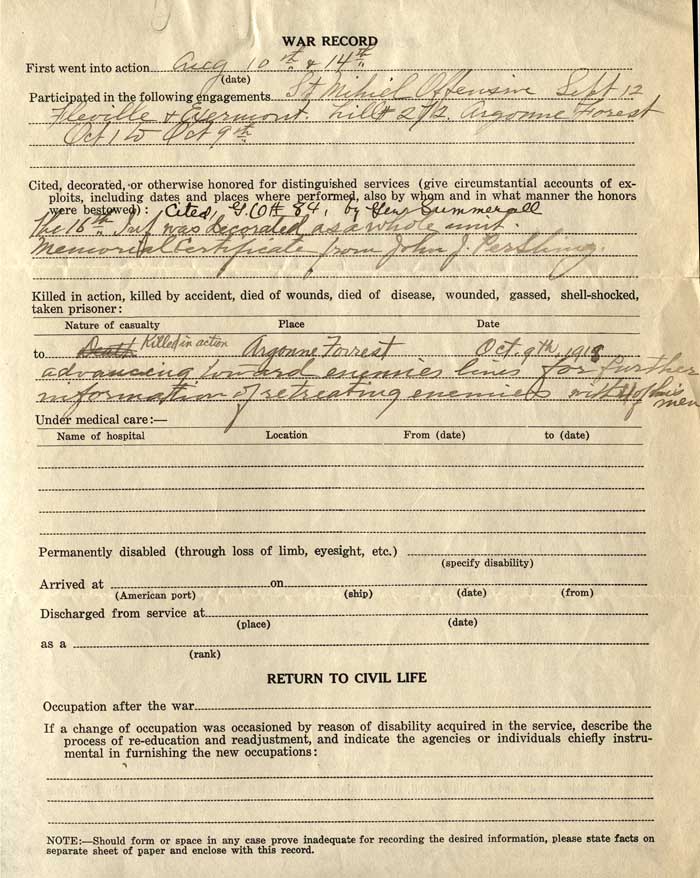 WAR RECORD
First went into action Aug 10th & 14th
(date)
Participated in the following engagements St Mihiel Offensive Sept 12
Fleville & Exermont. Hill# 272. Argonne Forest
Oct 1 to Oct 9th
Cited, decorated, or otherwise honored for distinguished services (give circumstantial accounts of ex-
ploits, including dates and places where performed, also by whom and in what manner the honors
were bestowed): Cited, G.O# 84, by Gen Summerall
The 16th Inf was decorated as a whole unit.
Memorial Certificate from John J. Pershing.
Killed in action, killed by accident, died of wounds, died of disease, wounded, gassed, shell-shocked,
taken prisoner:
Nature of casualty Place Date
to Death Killed in action Argonne Forrest Oct. 9th, 1918
advancing toward enemies lines for further
information of retreating enemies with 4 of his men
Under medical care:—
Name of hospital Location From (date) to (date)
Permanently disabled (through loss of limb, eyesight, etc.)
(specify disability)
Arrived at on
(American port) (ship) (date) (from)
Discharged from service at
(place) (date)
as a
(rank)
RETURN TO CIVIL LIFE
Occupation after the war
If a change of occupation was occasioned by reason of disability acquired in the service, describe the
process of re-education and readjustment, and indicate the agencies or individuals chiefly instru-
mental in furnishing the new occupations:
NOTE:—Should form or space in any case prove inadequate for recording the desired information, please state facts on
separate sheet of paper and enclose with this record.